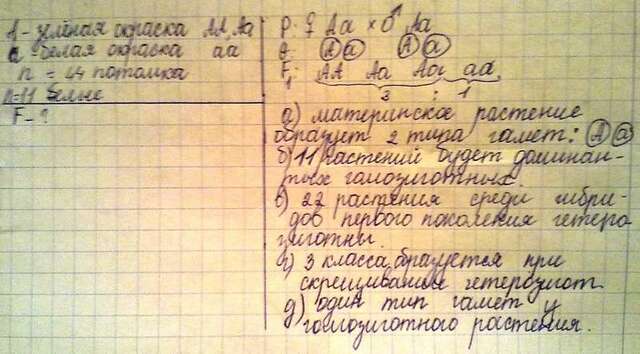 А - зелёная окраска АА, Аа
а - белая окраска аа
n = 44 потомка
n=11 белые
F - ?
P: ♀ Аа × ♂ Аа
G: А а А а
F₁: АА Аа Аа аа
3 : 1
а) материнское растение
образует 2 типа гамет: А а
б) 11 растений будет доминан-
тных гомозиготных.
в) 22 растения среди гибри-
дов первого поколения гетеро
зиготны.
г) 3 класса образуется при
скрещивании гетерозигот
д) один тип гамет у
гомозиготного растения.